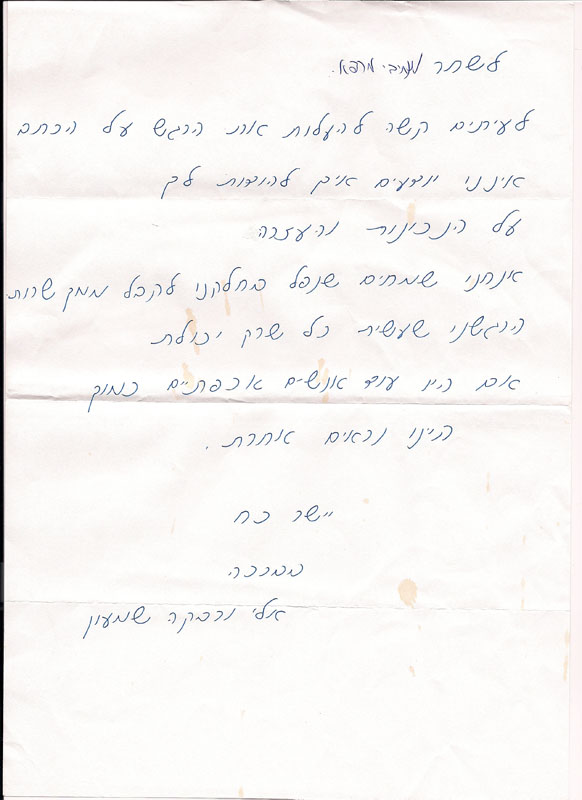 לשתר
לעיתים קשה להעלות את הרגש על הכתב
איננו יודעים איך להודות לך
על הנכונות והעזרה
אנחנו שמחים שנפל בחלקנו לקבל ממך שרות
הרגשנו שעשית כל שרק יכולת
אם היו עוד אנשים אכפתיים כמוך
היינו נראים אחרת.
יישר כח
ממני
אלי ורבקה שמעון